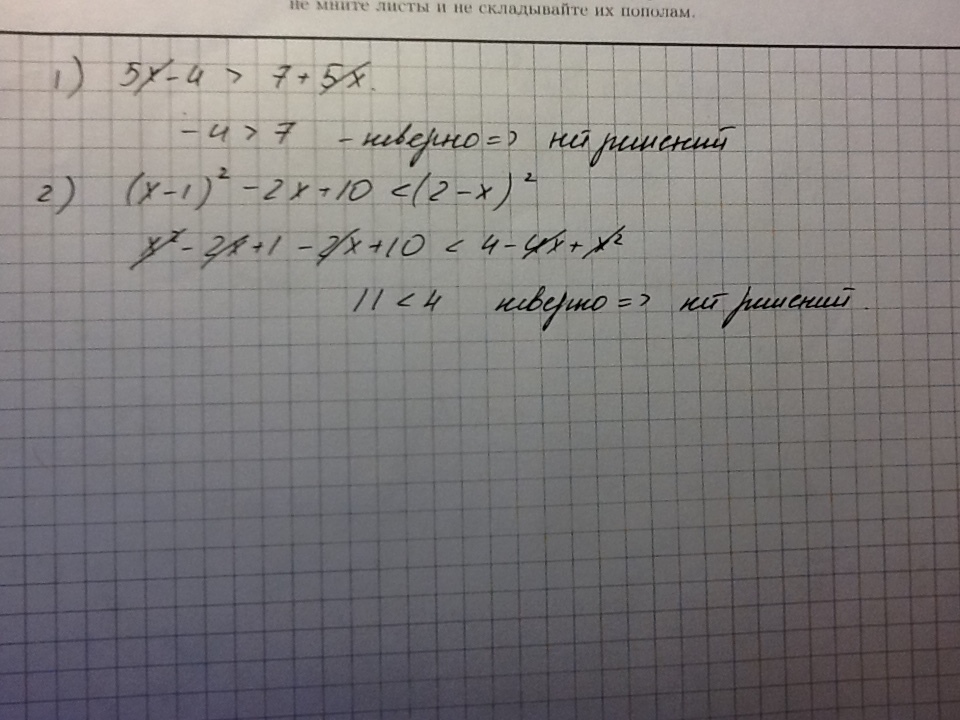 не мните листы и не складывайте их пополам.
1) 5x - 4 > 7 + 5x.
- 4 > 7 - неверно => нет решений
2) (x - 1)² - 2x + 10 < (2 - x)²
x² - 2x + 1 - 2x + 10 < 4 - 4x + x²
11 < 4 неверно => нет решений.